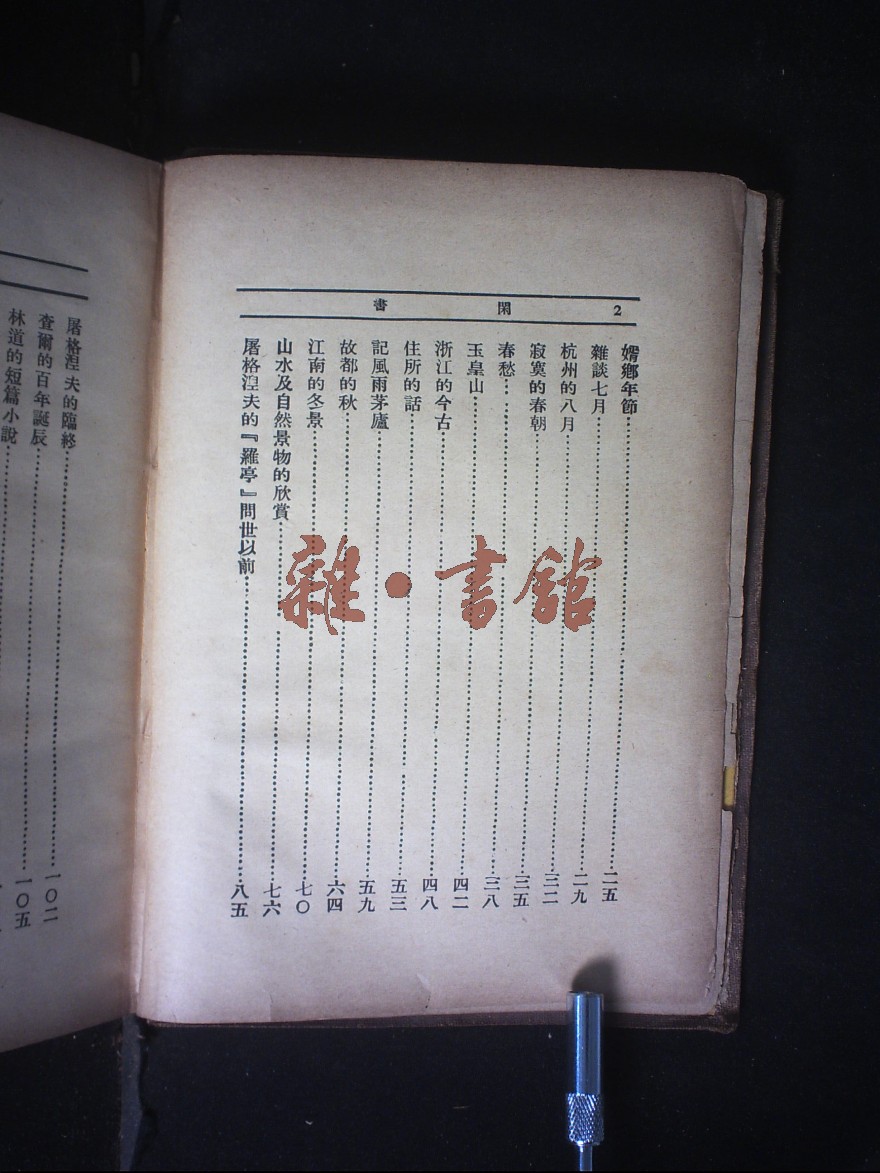 2 閑書
婿鄉年節……二五
雜談七月……二九
杭州的八月……三二
寂寞的春朝……三五
春愁……三八
玉皇山……四二
浙江的今古……四八
住所的話……五三
記風雨茅廬……五九
故都的秋……六四
江南的冬景……七〇
山水及自然景物的欣賞……七六
屠格湼夫的『羅亭』問世以前……八五
屠格湼夫的臨終……一〇二
查爾的百年誕辰……一〇五
林道的短篇小說……
雜·書館